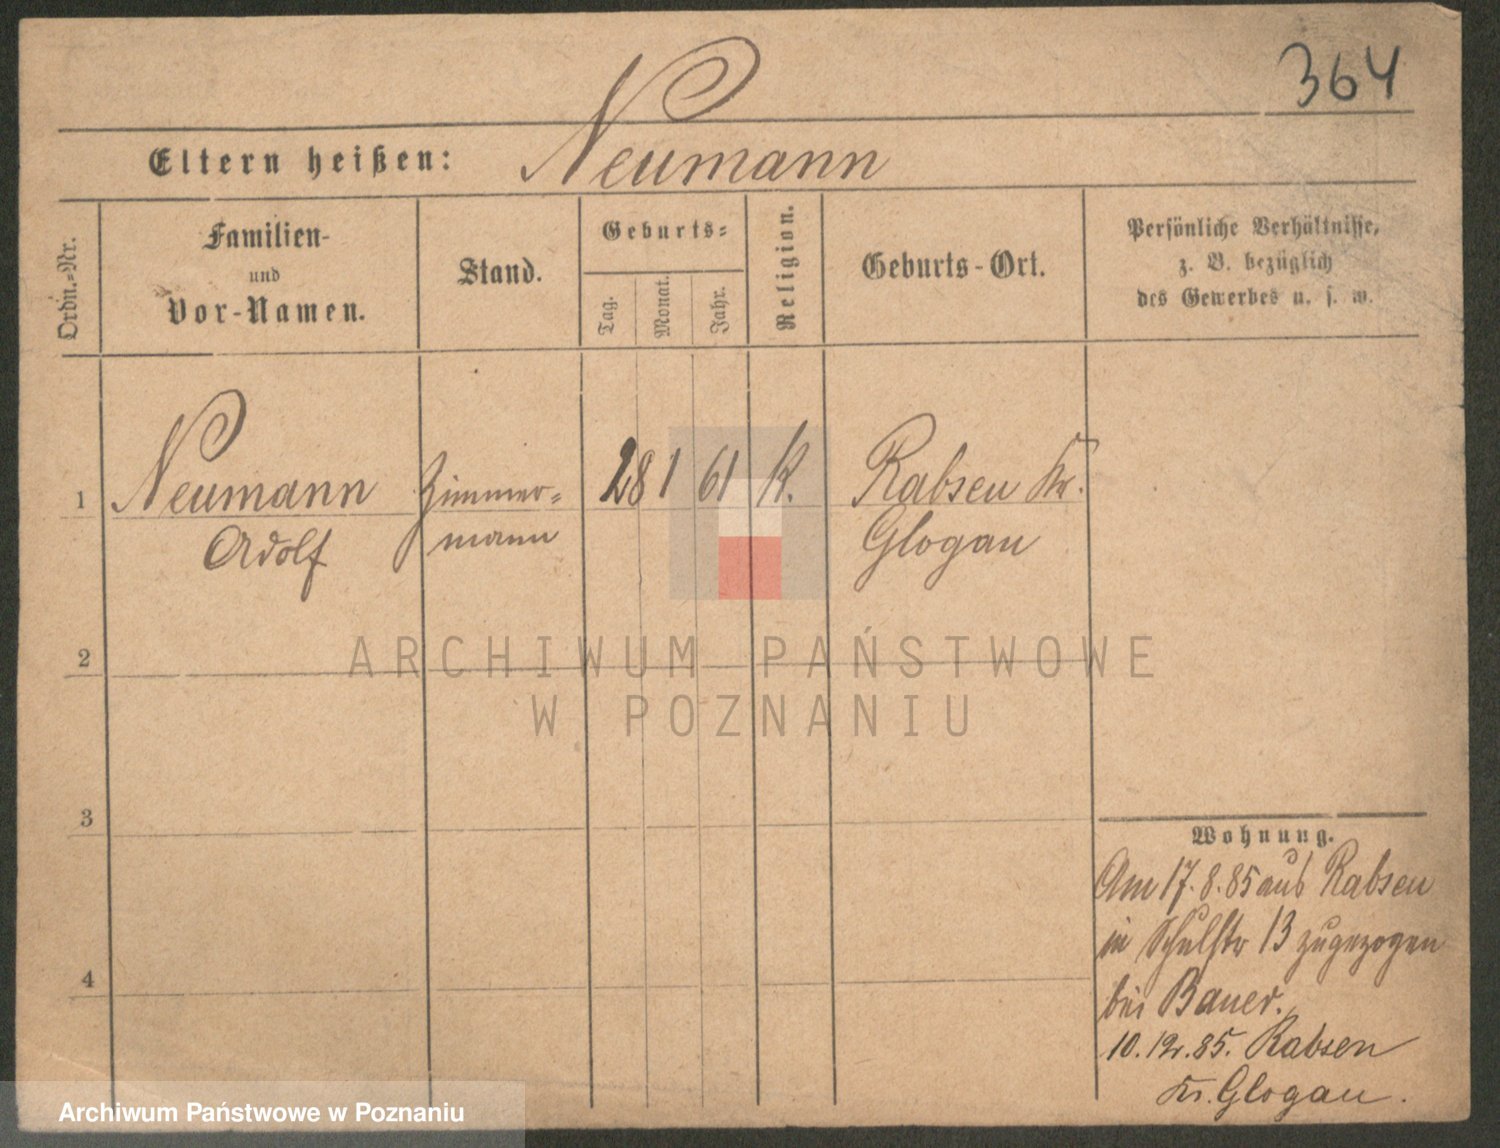 364
Eltern heißen: Neumann
Ordn.-Nr.
Familien-
und
Vor-Namen.
Stand.
Geburts-
Tag.
Monat.
Jahr.
Religion.
Geburts-Ort.
Persönliche Verhältnisse,
z. B. bezüglich
des Gewerbes u. s. w.
1 Neumann Zimmer- 28 1 61 K. Rabsen Kr.
Adolf mann Glogau
2
3
4
Wohnung.
Am 17.8.85 aus Rabsen
in Schulstr 13 zugezogen
bei Bauer.
10.12.85. Rabsen
Kr. Glogau.
ARCHIWUM PAŃSTWOWE
W POZNANIU
Archiwum Państwowe w Poznaniu